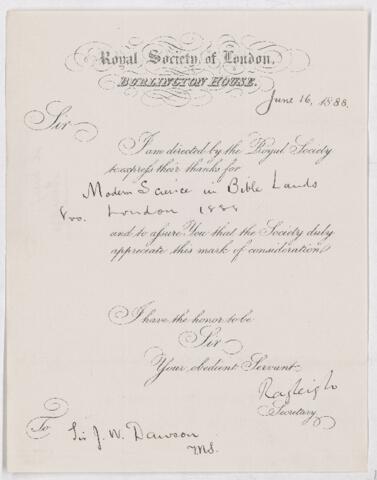 Royal Society of London.
BURLINGTON HOUSE.
June 16, 1888.
Sir
I am directed by the Royal Society
to express their thanks for
Modern Science in Bible Lands
8vo. London 1888
and to assure You that the Society duly
appreciate this mark of consideration
I have the honor to be
Sir
Your obedient Servant
Rayleigh
Secretary
To
Sir J. W. Dawson